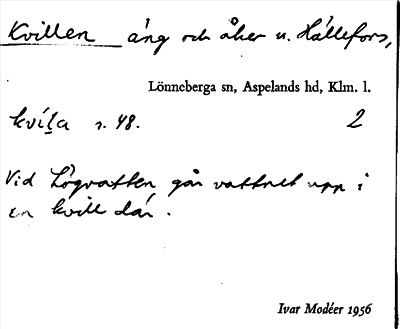 Kvillen äng och åker u. Hällefors,
Lönneberga sn, Aspelands hd, Klm. l.
kvíl̠a s. 48. 2
Vid högvatten går vattnet upp i
en kvill där.
Ivar Modéer 1956